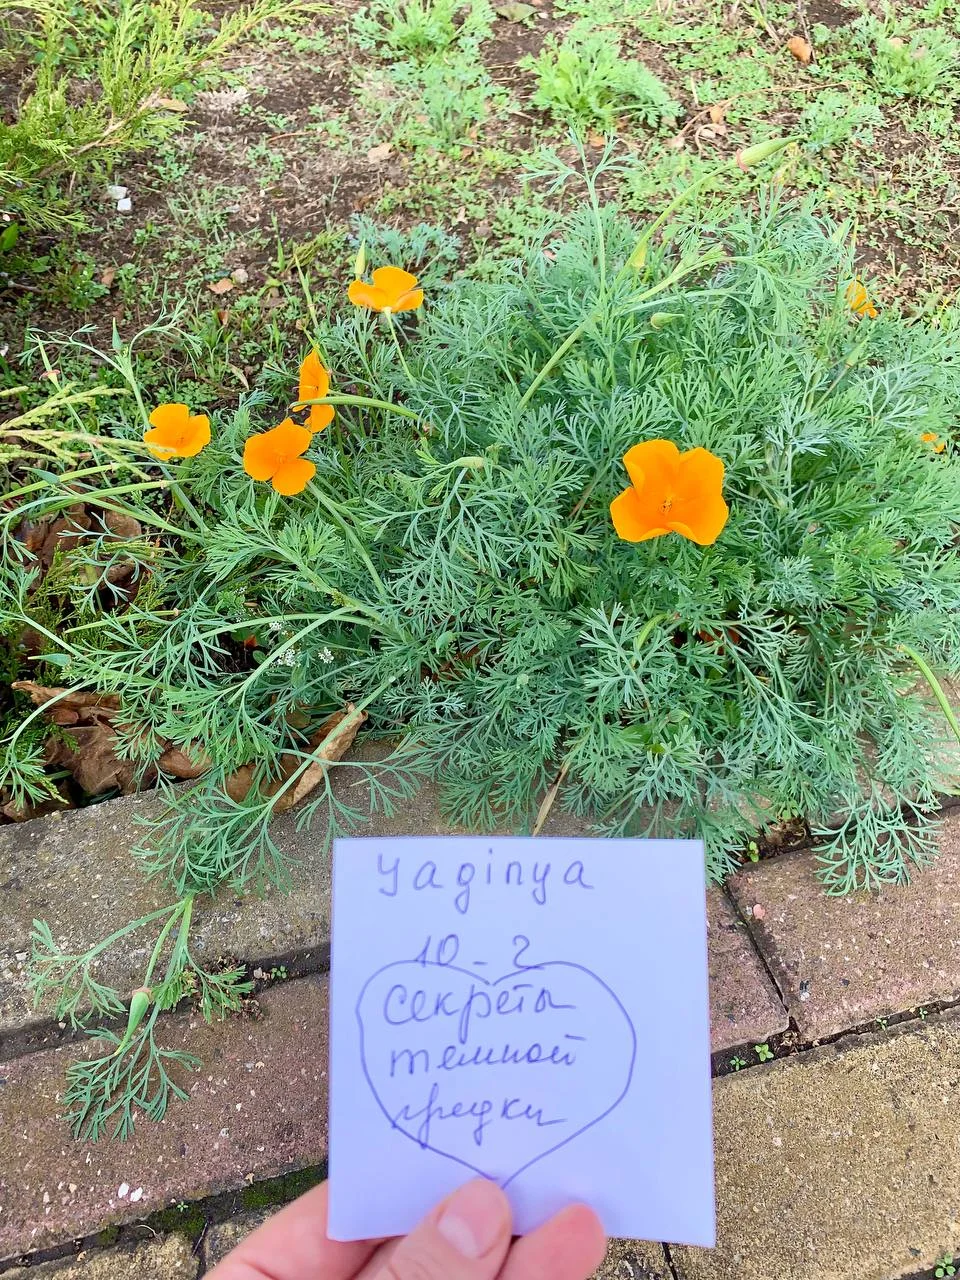 Yaginya
10-2
Секреты
темной
грядки